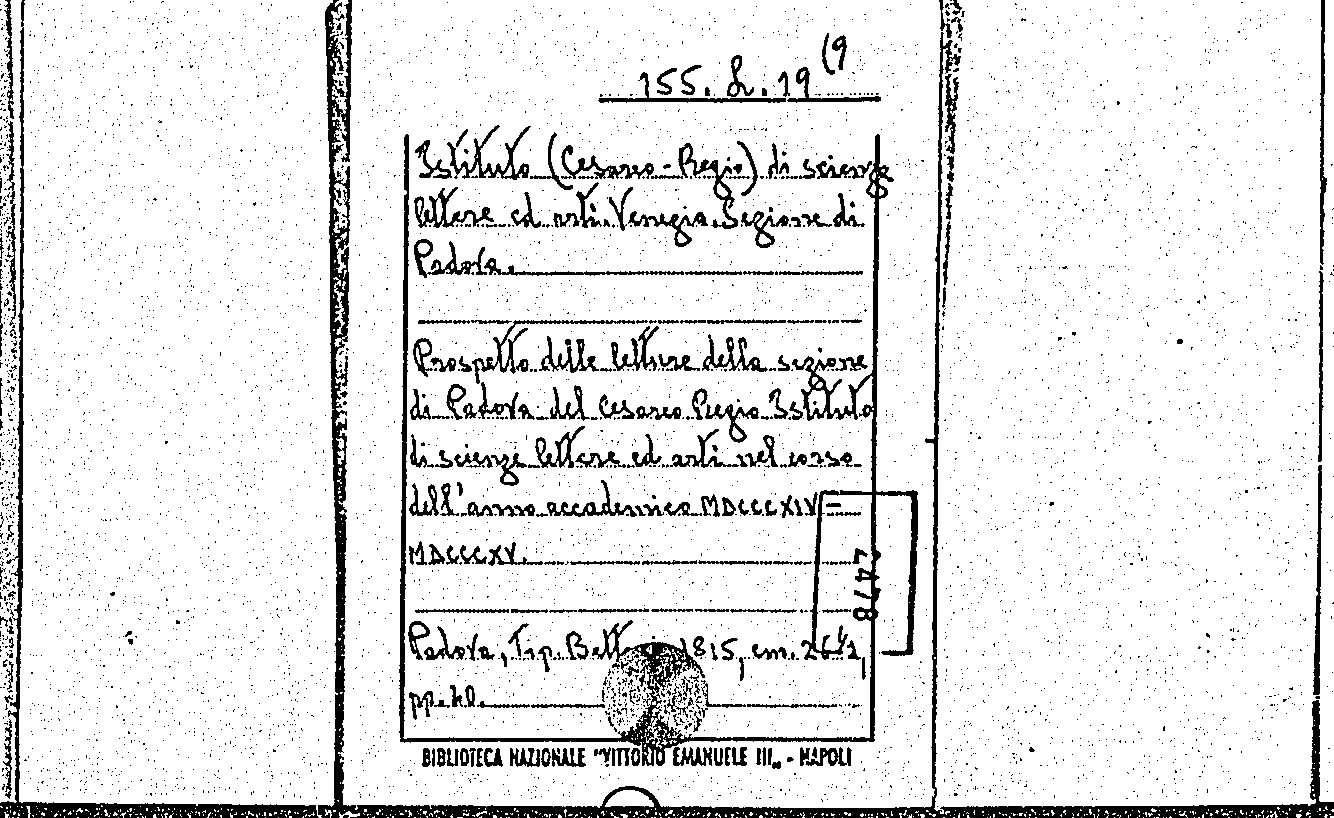 155. L. 19 (9
Istituto (Cesareo-Regio) di scienze
lettere ed arti. Venezia. Sezione di
Padova.
Prospetto delle letture della sezione
di Padova del Cesareo Regio Istituto
di scienze lettere ed arti nel corso
dell'anno accademico MDCCCXIV-
MDCCCXV.
2478
Padova, Tip. 1815, cm. 26½,
pp. 40.
BIBLIOTECA NAZIONALE "VITTORIO EMANUELE III„ - NAPOLI